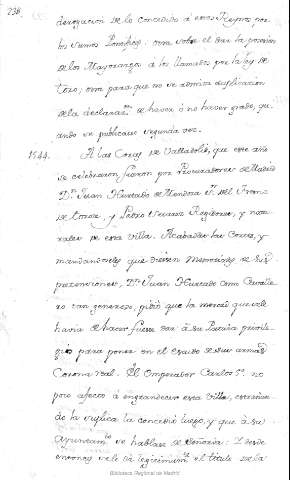 238.
derogacion de lo concedido á estos Reynos por
los Sumos Pontifices: otra sobre el dar la posesion
de los Mayorazgos á los llamados por la ley de
Toro; otra para que no se admita suplicacion
de la declarazon de haver ó no haver grado, qu-
ando se publicase segunda vez.
1544. A las Cortes de Valladolid, que este año
se celebraron fueron por Procuradores de Madrid
Dn. Juan Hurtado de Mendoza Sr. del Fresno
de Torote, y Pedro Suarez Regidores, y natu-
rales de esta Villa. Acabadas las Cortes, y
mandandoseles que diesen Memoriales de sus
pretensiones, Dn. Juan Hurtado como Cavalle-
ro tan generoso, pidió que la merced que se le
havia de hacer fuese dar á su Patria privile-
gio para poner en el escudo de sus armas
Corona Real. El Emperador Carlos 5º. no
poco afecto á engrandecer esta Villa,
de la suplica la concedió luego, y que á su
Ayuntamto. se hablase de Señoria. Y desde
entonces se le da legitimamte. el titulo de la
Biblioteca Regional de Madrid